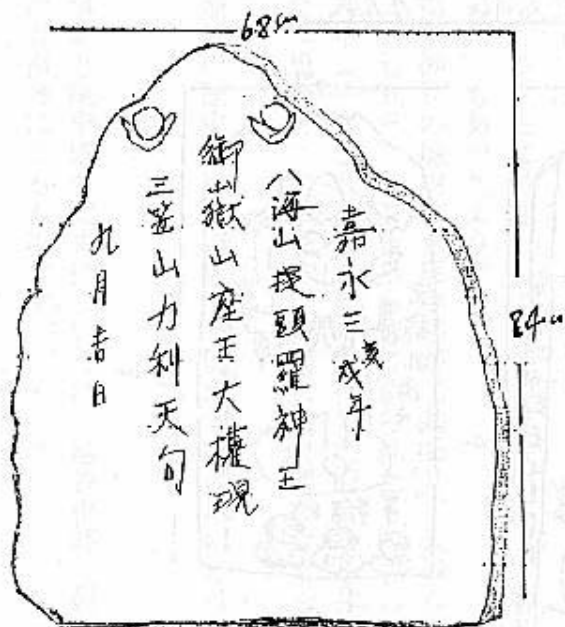 68cm
84cm
嘉永三歳戌年
八海山提頭羅神王
御嶽山座王大權現
三笠山力利天旬
九月吉日